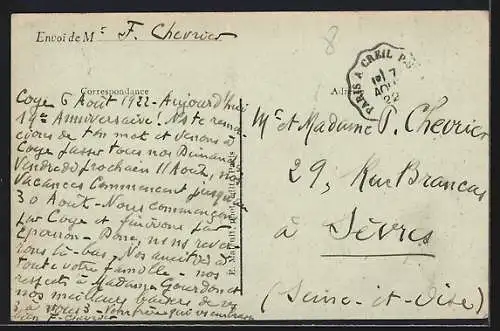 Envoi de Mr F. Chevrier
8
PARIS A CREIL
7
AOU
22
Correspondance
Coye 6 Août 1922 - Aujourd'hui
19e Anniversaire! Nous te remer
cions de ton mot et venons à
Coye passer tous nos Dimanc
Vendredi prochain 11 Août, nos
Vacances Commencent jusqu'au
30 Août - Nous commençons
par Coye et finirons par
Épernon - Donc, nous reve
rons là-bas. Nos amitiés à
toute votre famille - nos
respects à Madame Gourdon et
nos meilleurs baisers de
F. Chevrier
Mr et Madame P. Chevrier
29, Rue Brancas
à Sèvres
(Seine-et-Oise)